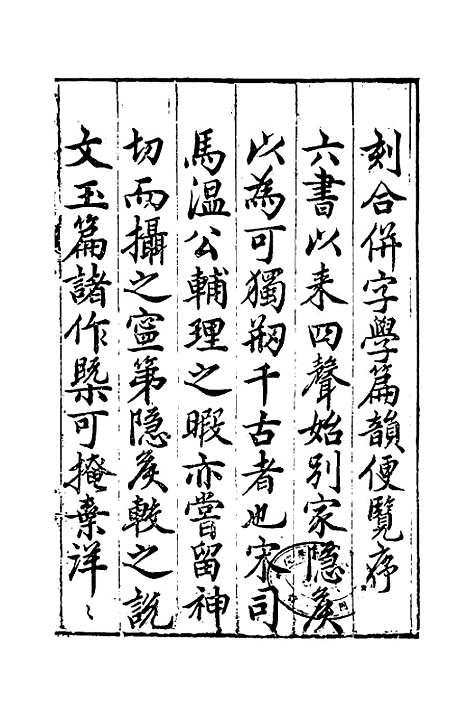 刻合併字學篇韻便覽序
六書以来四聲始別家隱矦
以為可獨剏千古者也宋司
馬温公輔理之暇亦嘗留神
切而攝之寧第隐矦較之說
文玉篇諸作槩可掩棄洋〻